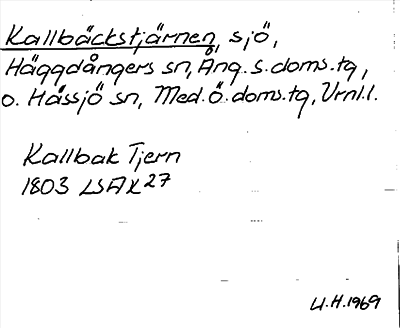 Kallbäckstjärnen, sjö,
Häggdångers sn, Ång. s. doms. tg,
o. Hässjö sn, Med. ö. doms. tg, Vrnl. l.
Kallbak Tjern
1803 LSA X 27
U.H. 1969